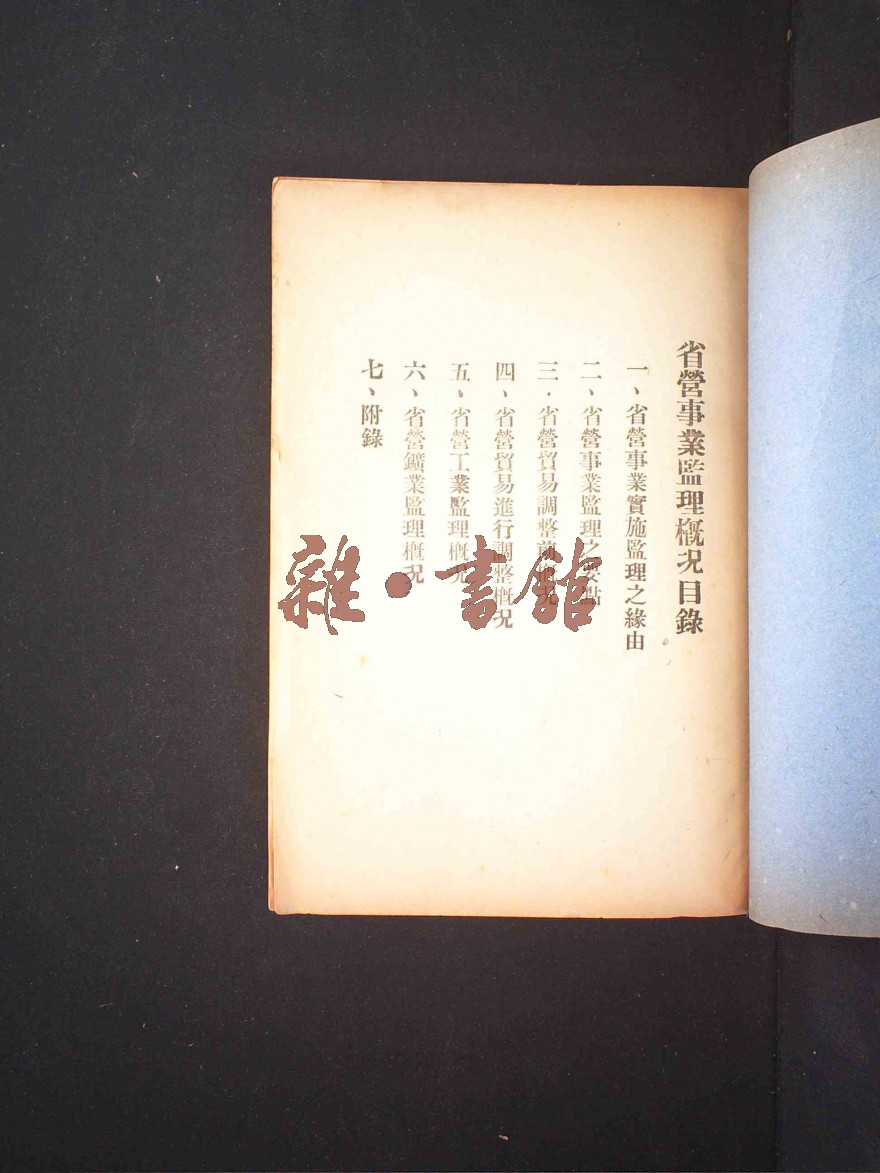 省營事業監理槪况目錄
一、省營事業實施監理之緣由
二、省營事業監理之要點
三．省營貿易調整前槪况
四、省營貿易進行調整槪况
五、省營工業監理槪况
六、省營鑛業監理槪况
七、附錄
雜·書館